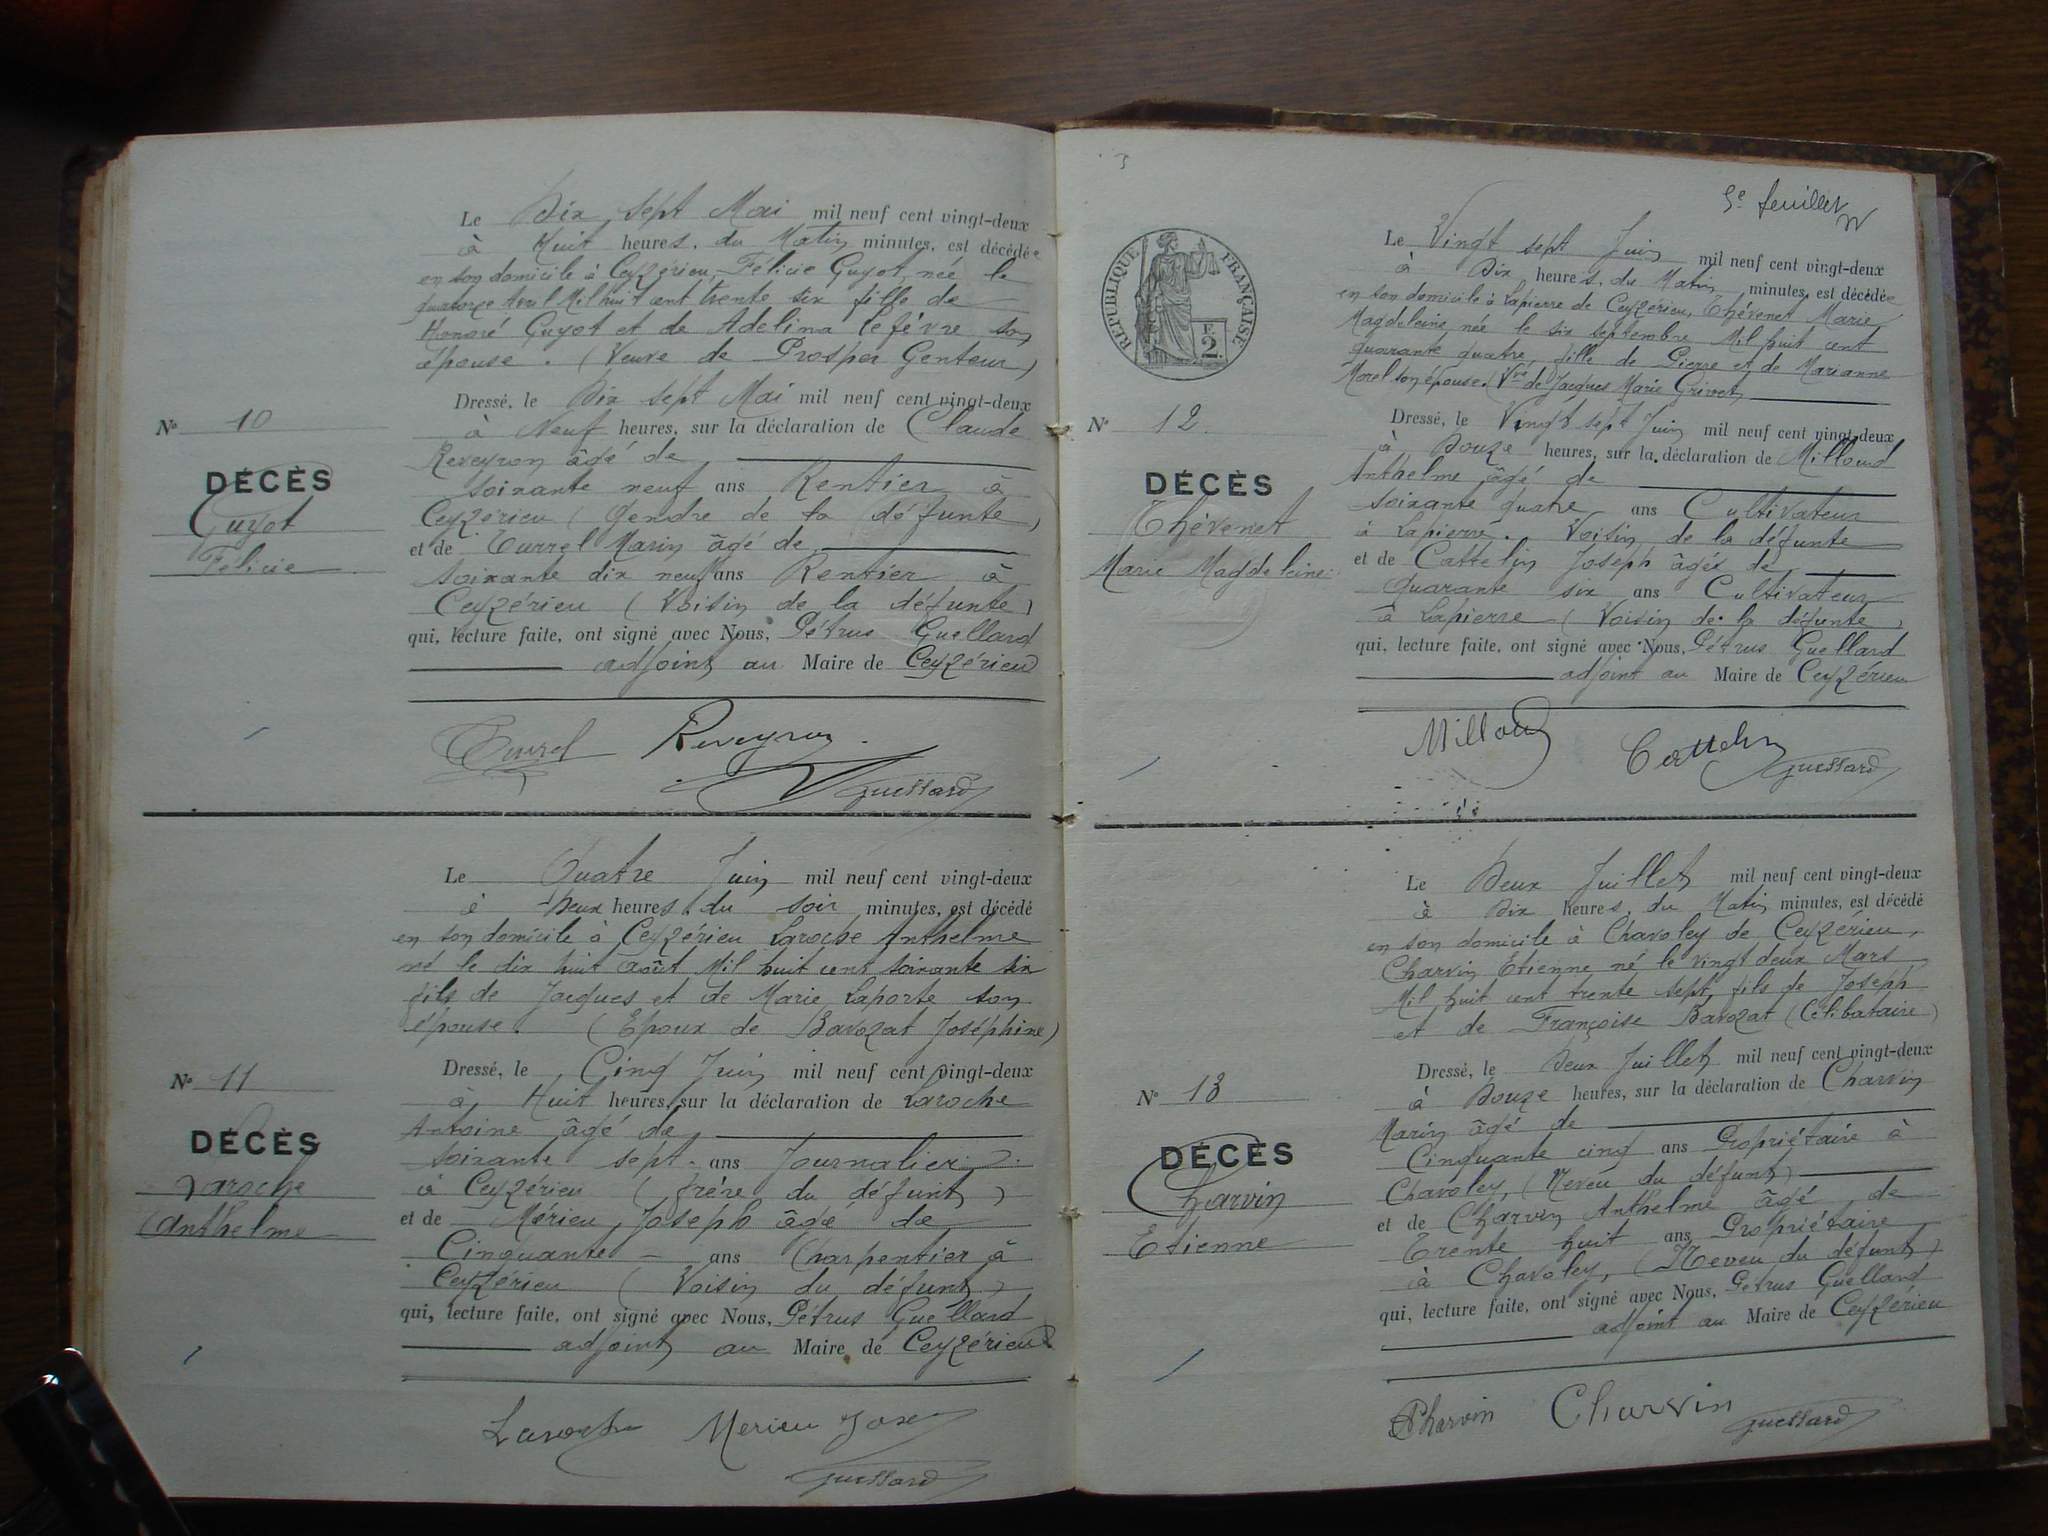 Le Dix sept Mai mil neuf cent vingt-deux
à Huit heures, du Matin minutes, est décédée
en son domicile à Ceyzérieu, Félicie Guyot, née le
quatorze Avril Mil huit cent trente six fille de
Honoré Guyot et de Adelina Lefèvre son
épouse. (Veuve de Prosper Genteur)
Dressé, le Dix sept Mai mil neuf cent vingt-deux
à Neuf heures, sur la déclaration de Claude
Reveyron âgé de
soixante neuf ans Rentier à
Ceyzérieu (Gendre de la défunte)
et de Turrel Marin âgé de
soixante dix neuf ans Rentier à
Ceyzérieu (Voisin de la défunte)
qui, lecture faite, ont signé avec Nous, Pétrus Guellard
adjoint au Maire de Ceyzérieu
Nº 10
DÉCÈS
Guyot
Félicie
Turrel Reveyron
Guellard
Le Quatre Juin mil neuf cent vingt-deux
à Deux heures du soir minutes, est décédé
en son domicile à Ceyzérieu Laroche Anthelme
né le dix huit août Mil huit cent soixante six
fils de Jacques et de Marie Laporte son
épouse. (Epoux de Bavozat Joséphine)
Dressé, le Cinq Juin mil neuf cent vingt-deux
à Huit heures, sur la déclaration de Laroche
Antoine âgé de
soixante sept ans Journalier
à Ceyzérieu (frère du défunt)
et de Mérieu Joseph âgé de
Cinquante ans Charpentier à
Ceyzérieu (Voisin du défunt)
qui, lecture faite, ont signé avec Nous, Pétrus Guellard
adjoint au Maire de Ceyzérieu
Nº 11
DÉCÈS
Laroche
Anthelme
Laroche Merieu Jose
Guellard
5e feuillet
RÉPUBLIQUE FRANÇAISE
2 F.
Le Vingt sept Juin mil neuf cent vingt-deux
à Dix heures, du Matin minutes, est décédée
en son domicile à Lapierre de Ceyzérieu, Thévenet Marie
Magdeleine née le six septembre Mil huit cent
quarante quatre, fille de Pierre et de Marianne
Morel son épouse. (Vve de Jacques Marie Grinet)
Dressé, le Vingt sept Juin mil neuf cent vingt-deux
à Douze heures, sur la déclaration de Milloud
Anthelme âgé de
soixante quatre ans Cultivateur
à Lapierre. Voisin de la défunte
et de Cattelin Joseph âgé de
quarante six ans Cultivateur
à Lapierre (Voisin de la défunte)
qui, lecture faite, ont signé avec Nous, Pétrus Guellard
adjoint au Maire de Ceyzérieu
Nº 12
DÉCÈS
Thévenet
Marie Magdeleine
Milloud Cattelin
Guellard
Le Deux Juillet mil neuf cent vingt-deux
à Dix heures, du Matin minutes, est décédé
en son domicile à Chavoley de Ceyzérieu,
Charvin Etienne né le vingt deux Mars
Mil huit cent trente sept, fils de Joseph
et de Françoise Bavozat (Célibataire)
Dressé, le Deux Juillet mil neuf cent vingt-deux
à Douze heures, sur la déclaration de Charvin
Marin âgé de
Cinquante cinq ans Propriétaire à
Chavoley, (Neveu du défunt)
et de Charvin Anthelme âgé de
Trente huit ans Propriétaire
à Chavoley, (Neveu du défunt)
qui, lecture faite, ont signé avec Nous, Pétrus Guellard
adjoint au Maire de Ceyzérieu
Nº 13
DÉCÈS
Charvin
Etienne
Charvin Charvin
Guellard